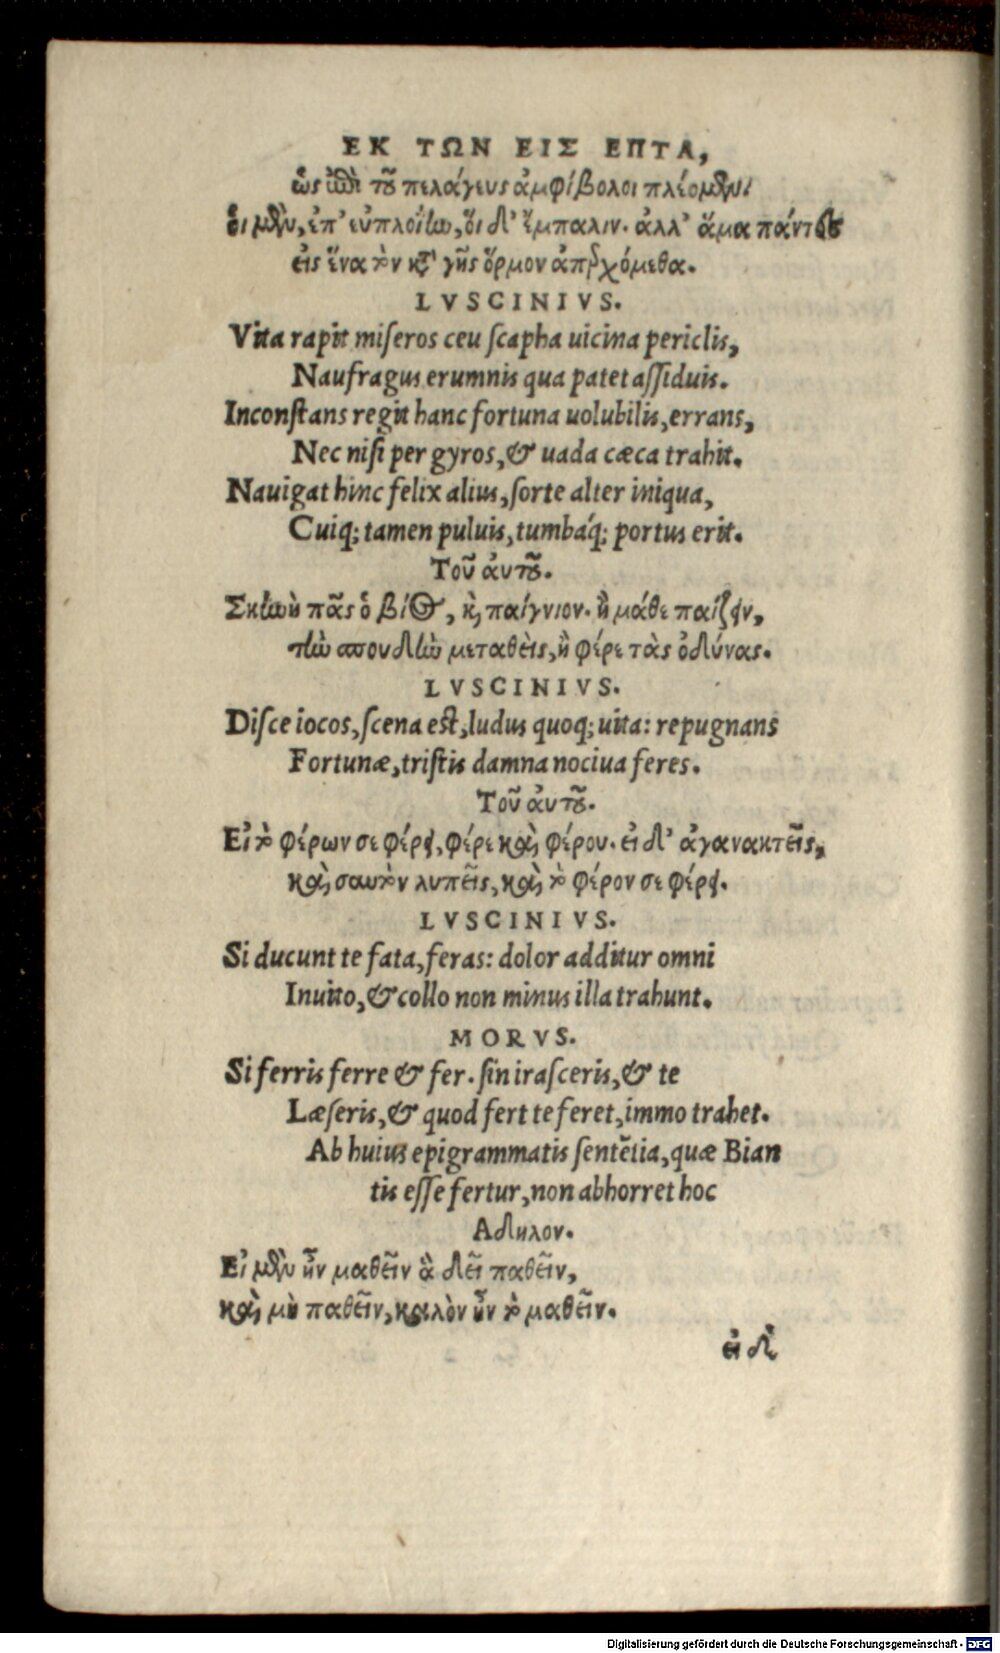 ΕΚ ΤΩΝ ΕΙΣ ΕΠΤΑ,
ὡς ἐπὶ τοῦ πελάγευς ἀμφίβολοι πλέομεν.
ὁι μὲν, ἐπ' εὐπλοΐην, ὅι δ' ἔμπαλιν. ἀλλ' ἅμα πάντες
εἰς ἕνα τὸν κατ' γῆς ὅρμον ἀπερχόμεθα.
LVSCINIVS.
Vita rapit miſeros ceu ſcapha uicina periclis,
Naufragus erumnis qua patet aſſiduis.
Inconſtans regit hanc fortuna uolubilis, errans,
Nec niſi per gyros, & uada cæca trahit.
Nauigat hinc felix alius, ſorte alter iniqua,
Cuiq; tamen puluis, tumbáq; portus erit.
Τοῦ ἀυτοῦ.
Σκηνὴ πᾶς ὁ βίος, καὶ παίγνιον. ἢ μάθε παίζειν,
τὴν σπουδὴν μεταθεὶς, ἢ φέρε τὰς ὀδύνας.
LVSCINIVS.
Diſce iocos, ſcena eſt, ludus quoq; uita: repugnans
Fortunæ, triſtis damna nociua feres.
Τοῦ ἀυτοῦ.
Εἰ τὸ φέρων σε φέρει, φέρε καὶ φέρου. εἰ δ' ἀγανακτεῖς,
καὶ σαυτὸν λυπεῖς, καὶ τὸ φέρον σε φέρει.
LVSCINIVS.
Si ducunt te fata, feras: dolor additur omni
Inuito, & collo non minus illa trahunt.
MORVS.
Si ferris ferre & fer. ſin iraſceris, & te
Læſeris, & quod fert te feret, immo trahet.
Ab huius epigrammatis ſentẽtia, quæ Bian
tis eſſe fertur, non abhorret hoc
Αδηλον.
Εἰ μὲν ἦν μαθεῖν ἃ δεῖ παθεῖν,
καὶ μὴ παθεῖν, καλὸν ἦν τὸ μαθεῖν.
εἰ δὲ
Digitalisierung gefördert durch die Deutsche Forschungsgemeinschaft - DFG